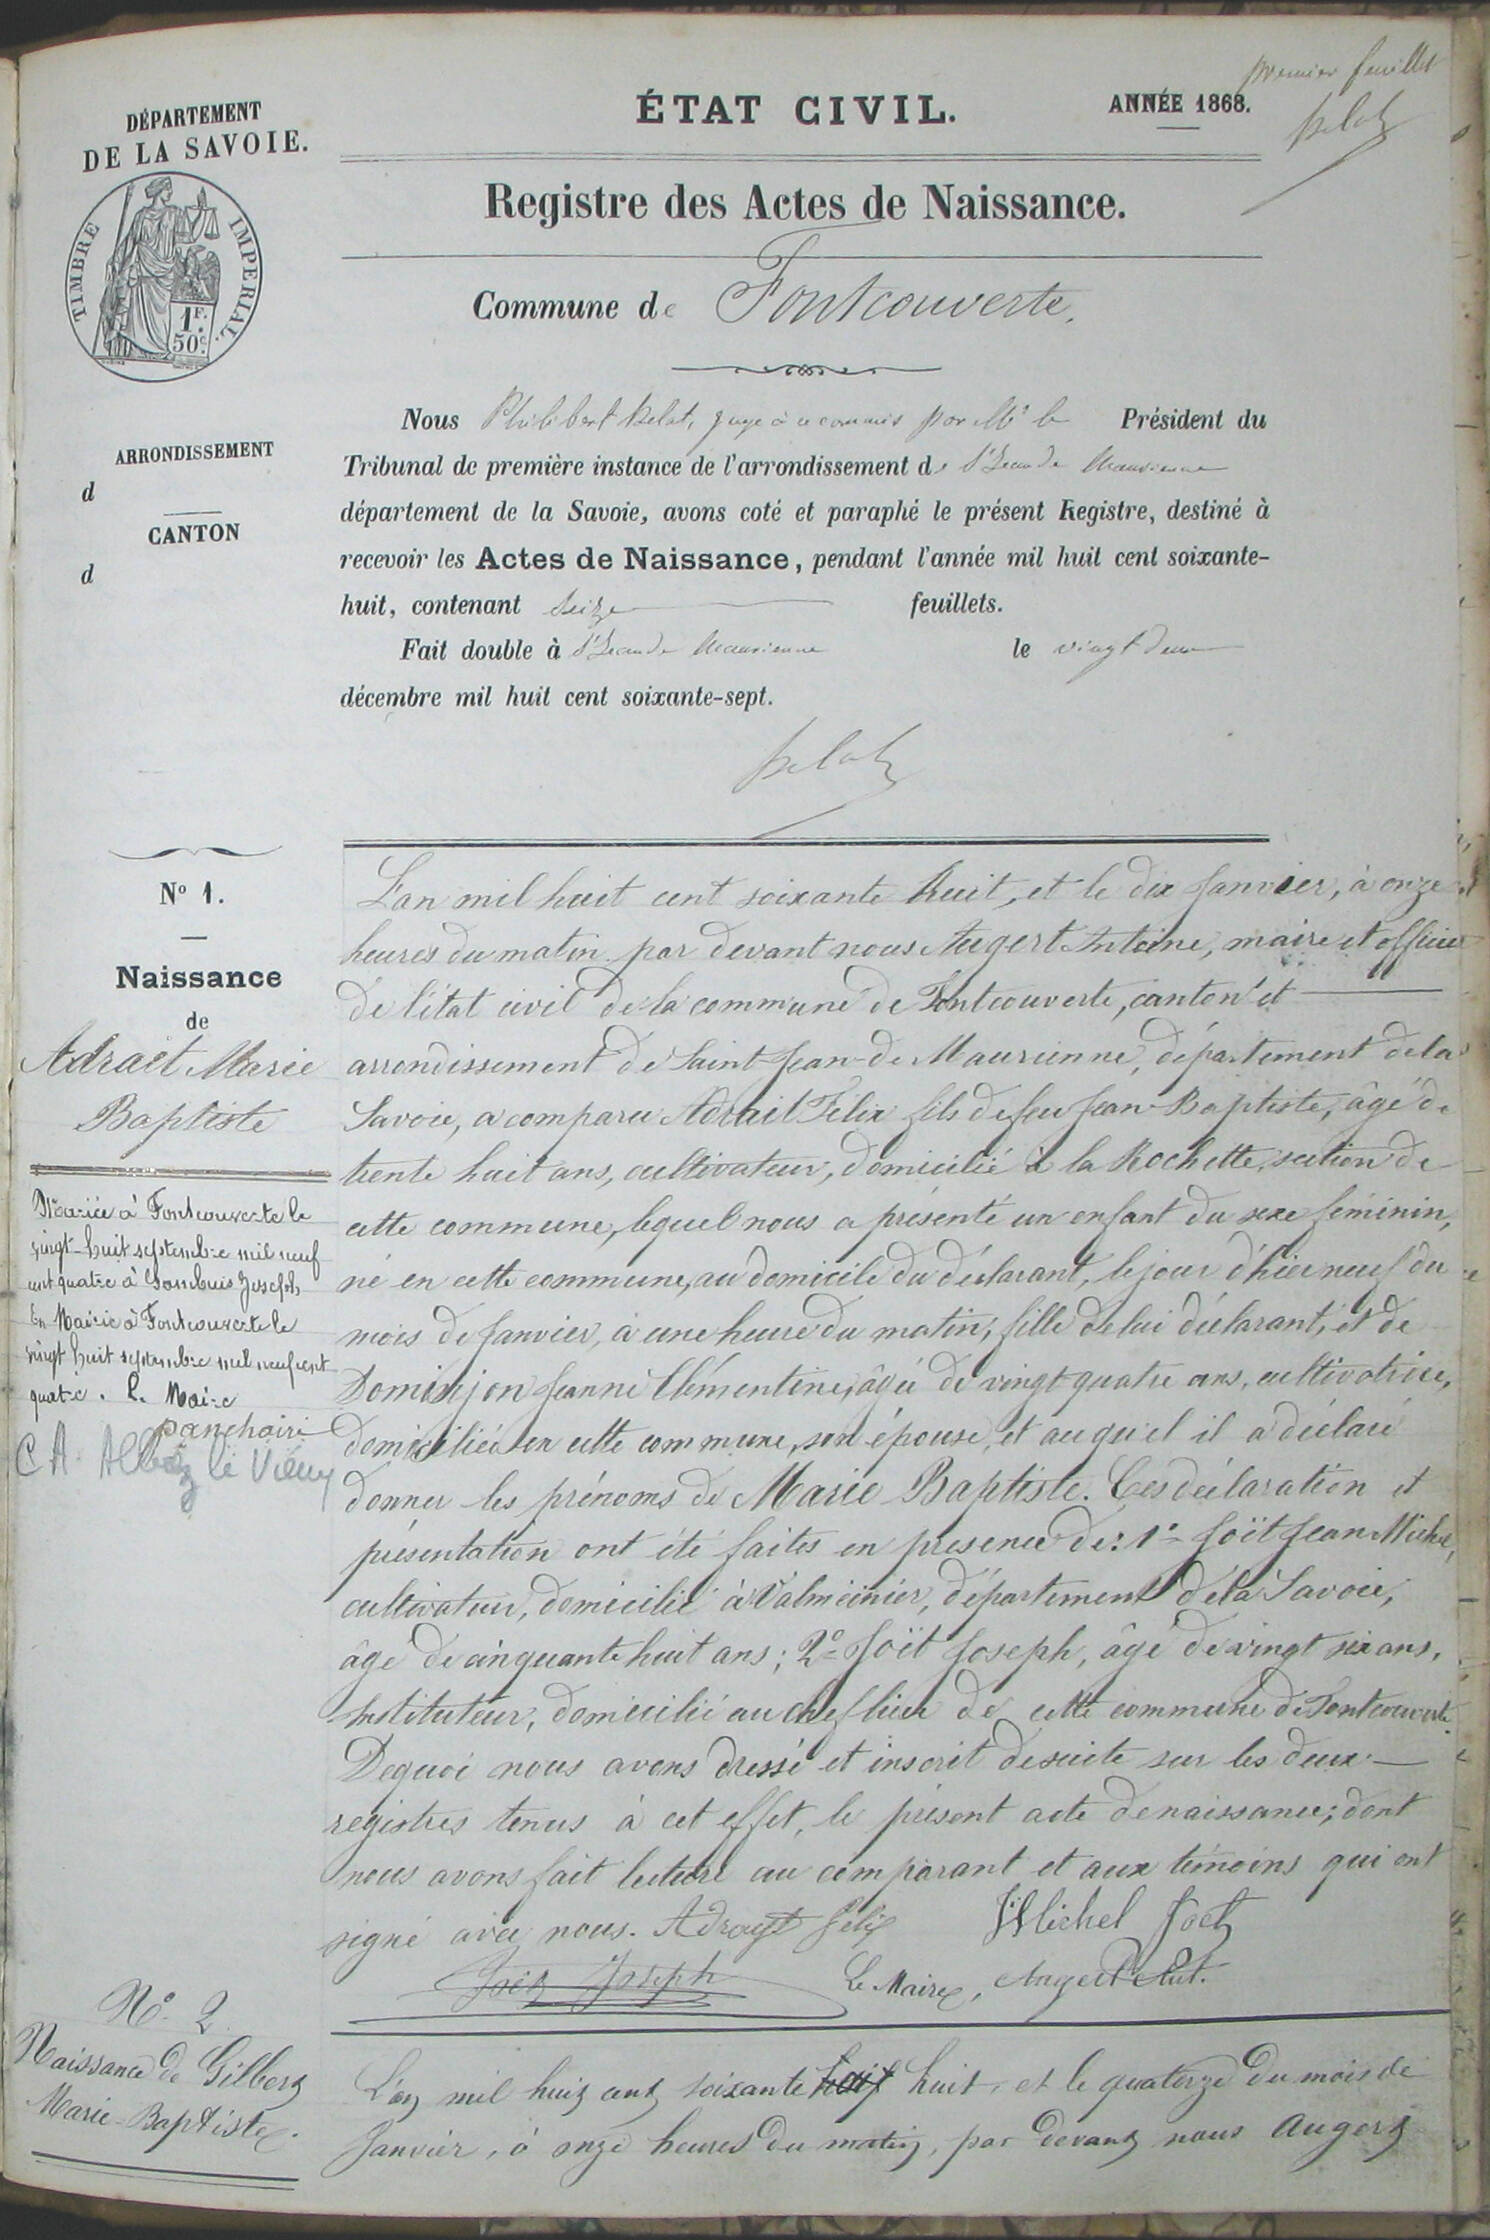 premier feuillet
DÉPARTEMENT
DE LA SAVOIE.
ÉTAT CIVIL.
ANNÉE 1868.
Registre des Actes de Naissance.
TIMBRE IMPERIAL.
1F.
50c.
Commune de Fontcouverte.
Nous Philibert Belat, juge à ce commis par Mr le Président du
ARRONDISSEMENT
d
Tribunal de première instance de l'arrondissement de St Jean de Maurienne
département de la Savoie, avons coté et paraphé le présent Registre, destiné à
CANTON
d
recevoir les Actes de Naissance, pendant l'année mil huit cent soixante-
huit, contenant seize feuillets.
Fait double à St Jean de Maurienne le vingt deux
décembre mil huit cent soixante-sept.
Belat
No 1.
Naissance
de
Adrait Marie
Baptiste
Mariée à Fontcouverte le
vingt-huit septembre mil neuf
cent quatre à Joseph
En Mairie à Fontcouverte le
vingt huit septembre mil neuf cent
quatre. Le Maire
C A Albiez le Vieux
L'an mil huit cent soixante huit, et le dix Janvier, à onze
heures du matin par devant nous Augert Antoine, maire et officier
de l'état civil de la commune de Fontcouverte, canton et
arrondissement de Saint-Jean-de-Maurienne, département de la
Savoie, a comparu Adrait Félix fils de feu Jean-Baptiste, âgé de
trente huit ans, cultivateur, domicilié à la Rochette, section de
cette commune, lequel nous a présenté un enfant du sexe féminin,
né en cette commune, au domicile du déclarant, le jour d'hier neuf du
mois de Janvier, à une heure du matin, fille de lui déclarant, et de
Dominjon Jeanne Clémentine, âgée de vingt quatre ans, cultivatrice,
domiciliée en cette commune, son épouse, et auquel il a déclaré
donner les prénoms de Marie Baptiste. Ces déclaration et
présentation ont été faites en présence de: 1o Joët Jean Michel,
cultivateur, domicilié à Valmeinier, département de la Savoie,
âgé de cinquante huit ans; 2o Joët Joseph, âgé de vingt six ans,
instituteur, domicilié au chef lieu de cette commune de Fontcouverte.
De quoi nous avons dressé et inscrit de suite sur les deux
registres tenus à cet effet, le présent acte de naissance; dont
nous avons fait lecture au comparant et aux témoins qui ont
signé avec nous. Adrayt félix Michel Joët
Joët Joseph Le Maire, Augert Ant.
No 2
Naissance de Gilbert
Marie-Baptiste.
L'an mil huit cent soixante huit huit, et le quatorze du mois de
Janvier, à onze heures du matin, par devant nous Augert